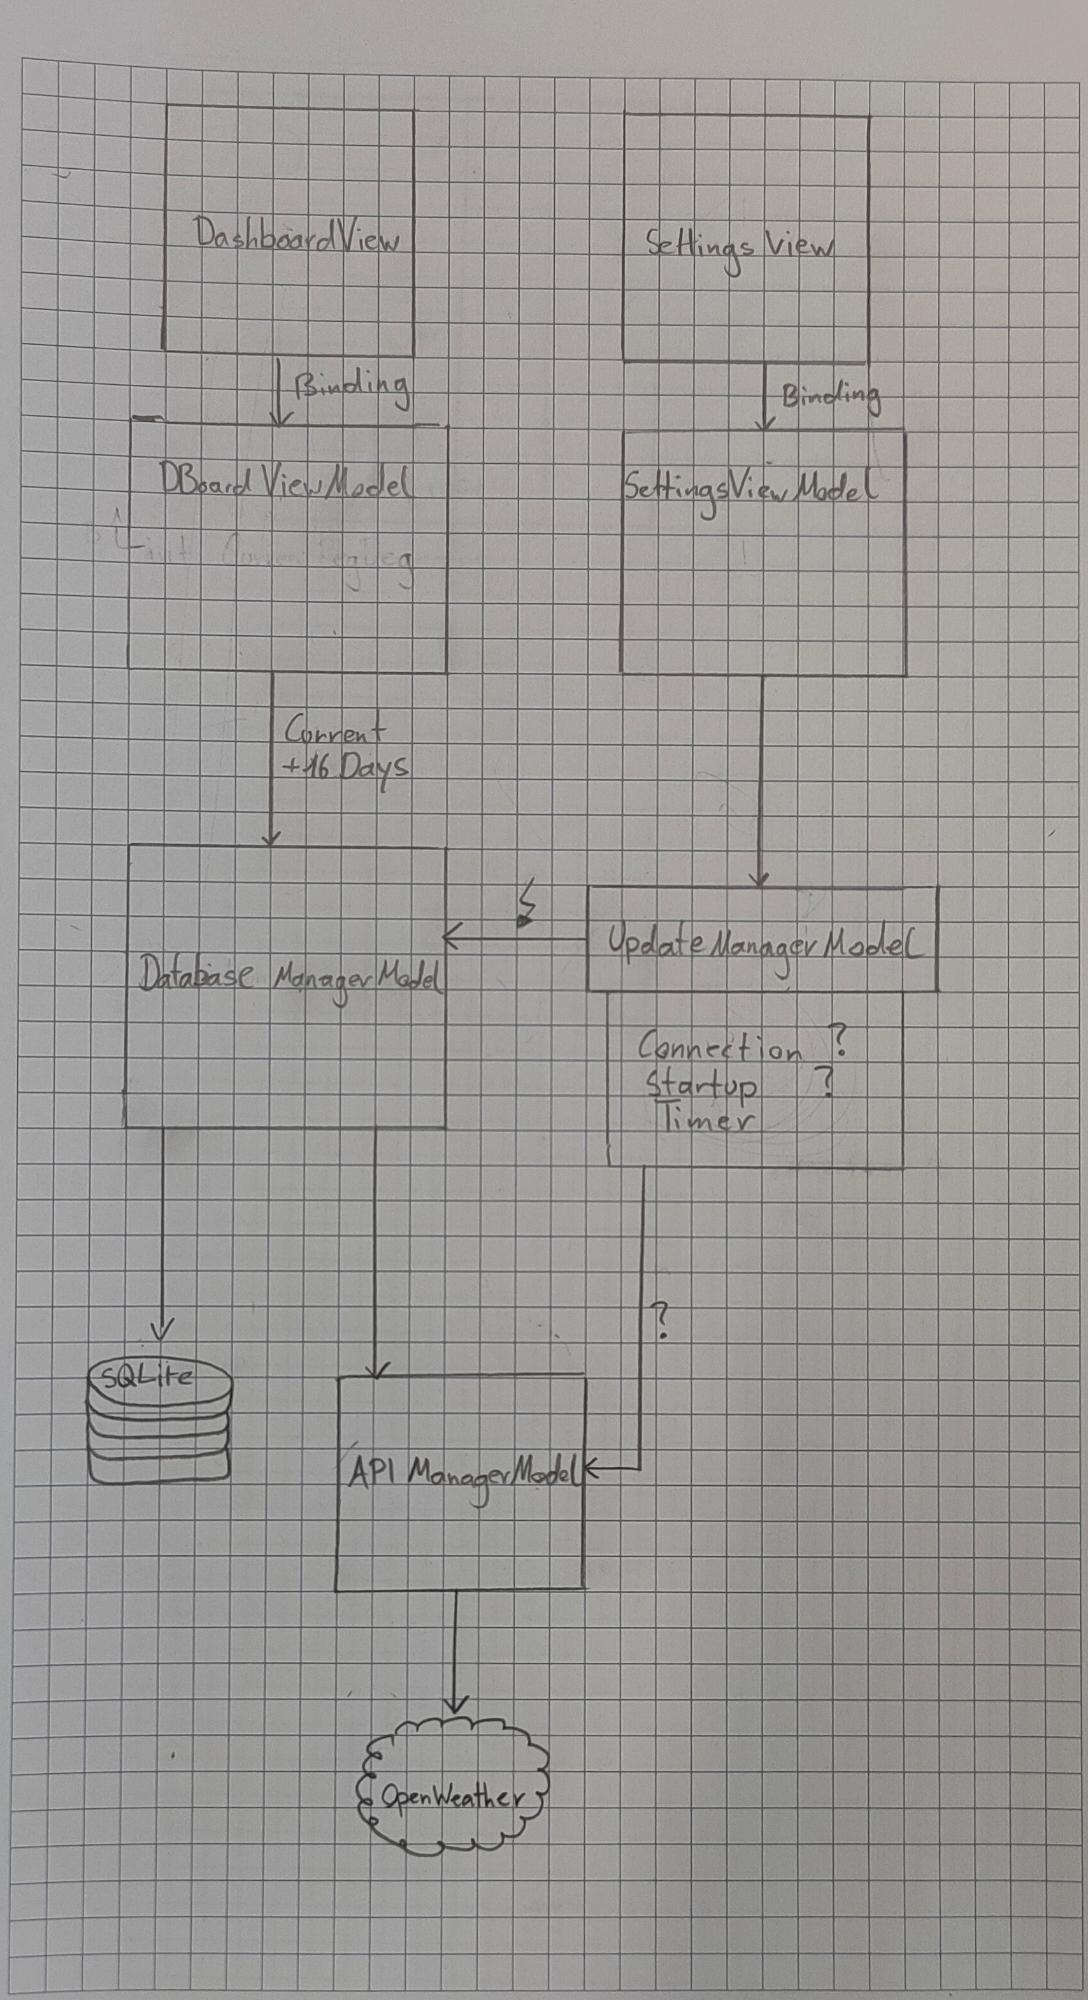 DashboardView
Settings View
Binding
Binding
DBoard ViewModel
SettingsViewModel
Current
+16 Days
UpdateManagerModel
Database ManagerModel
Connection ?
Startup ?
Timer
?
SQLite
API ManagerModel
OpenWeather